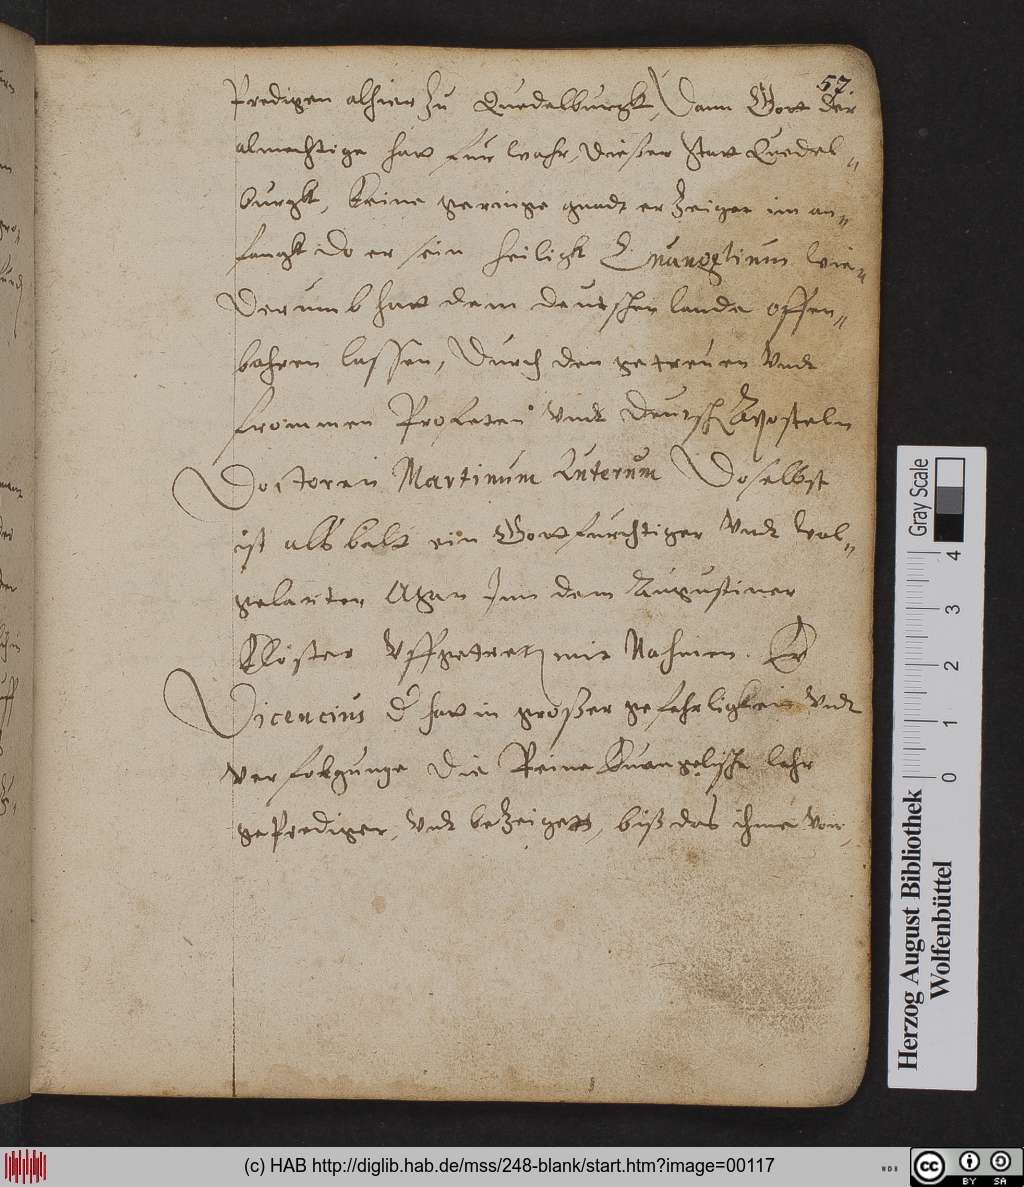 57.
Predigen alhier zu Quedelburgk, Dann Gott der
almechtige hatt fur wahr, dießer Statt Quedel„
burgk, keine geringe gnadt erzeiget im an„
fangk do er sein heiligk Evangelium wie„
derumb hatt dem deutschen lande offen„
bahren lassen, Durch den getreuen Undt
frommen Profeten Undt deutsch Aposteln
Doctoren Martinum Luterum Doselbst
ist alß balt ein Gottfurchtiger Undt wol„
gelarter Man Inn dem Augustiner
Kloster Uffgetretten mit Nahmen. Er
Vicencius d hatt in großer gefehrligkeit Undt
verfolgunge die Reine Evangelische lehr
geprediget, Undt bezeiget, biß das ihme von
Gray Scale
4
3
2
1
0
Herzog August Bibliothek
Wolfenbüttel
(c) HAB http://diglib.hab.de/mss/248-blank/start.htm?image=00117
WDB
cc
BY SA